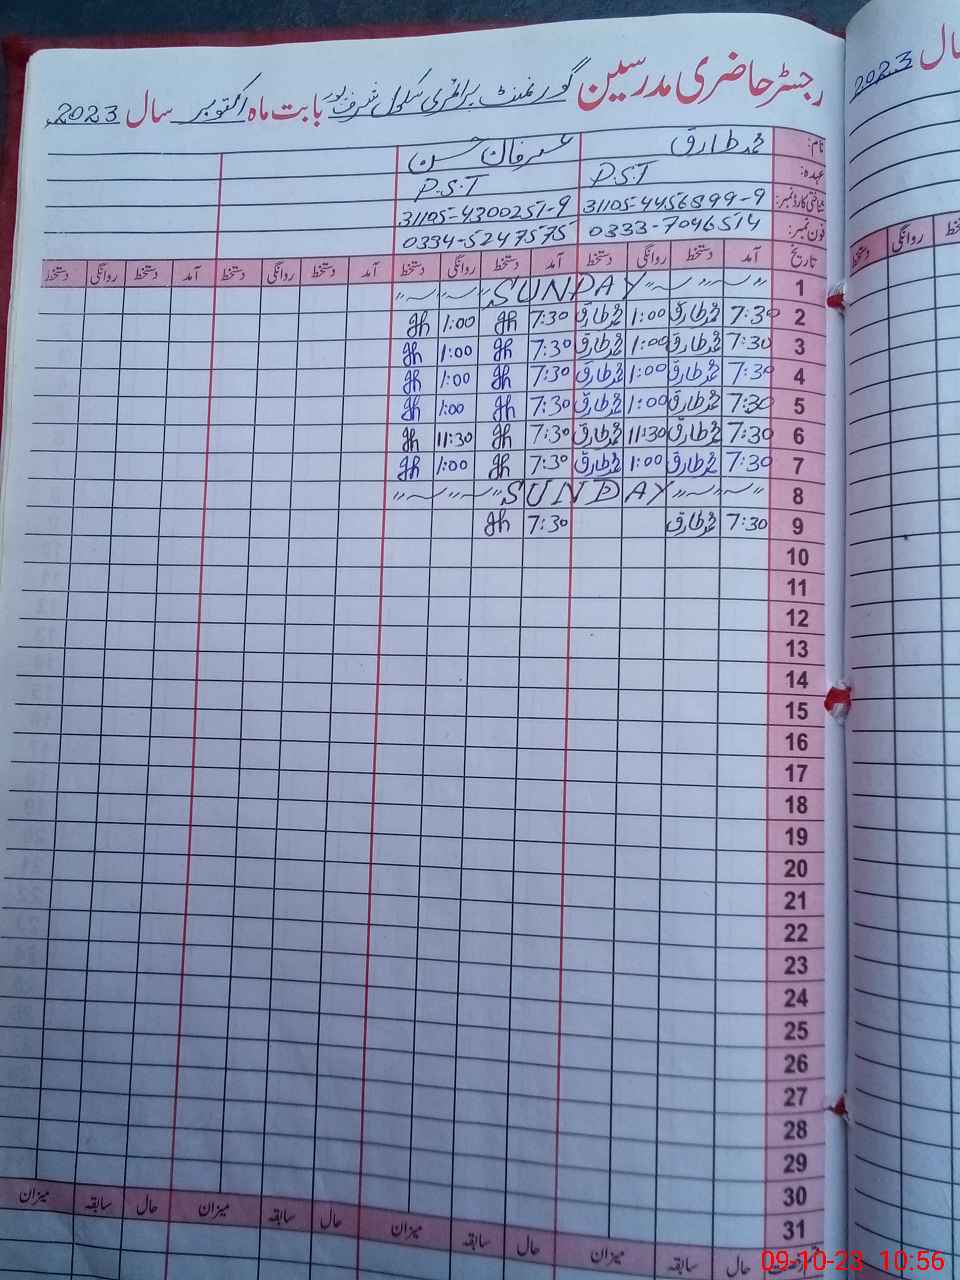 رجسٹر حاضری مدرسین گورنمنٹ پرائمری سکول شرف پور بابت ماہ اکتوبر سال 2023
نام: محمد طارق عرفان حسن
عہدہ: P.S.T P.S.T
شناختی کارڈ نمبر: 31105-4456899-9 31105-4300251-9
فون نمبر: 0333-7046514 0334-5247575
تاریخ آمد دستخط روانگی دستخط آمد دستخط روانگی دستخط آمد دستخط روانگی دستخط آمد دستخط روانگی دستخط
1 SUNDAY
2 7:30 محمد طارق 1:00 محمد طارق 7:30 1:00
3 7:30 محمد طارق 1:00 محمد طارق 7:30 1:00
4 7:30 محمد طارق 1:00 محمد طارق 7:30 1:00
5 7:30 محمد طارق 1:00 محمد طارق 7:30 1:00
6 7:30 محمد طارق 11:30 محمد طارق 7:30 11:30
7 7:30 محمد طارق 1:00 محمد طارق 7:30 1:00
8 SUNDAY
9 7:30 محمد طارق 7:30
10
11
12
13
14
15
16
17
18
19
20
21
22
23
24
25
26
27
28
29
30
31
حال سابقہ میزان حال سابقہ میزان حال سابقہ میزان حال سابقہ میزان
سال 2023
روانگی دستخط
09-10-23 10:56